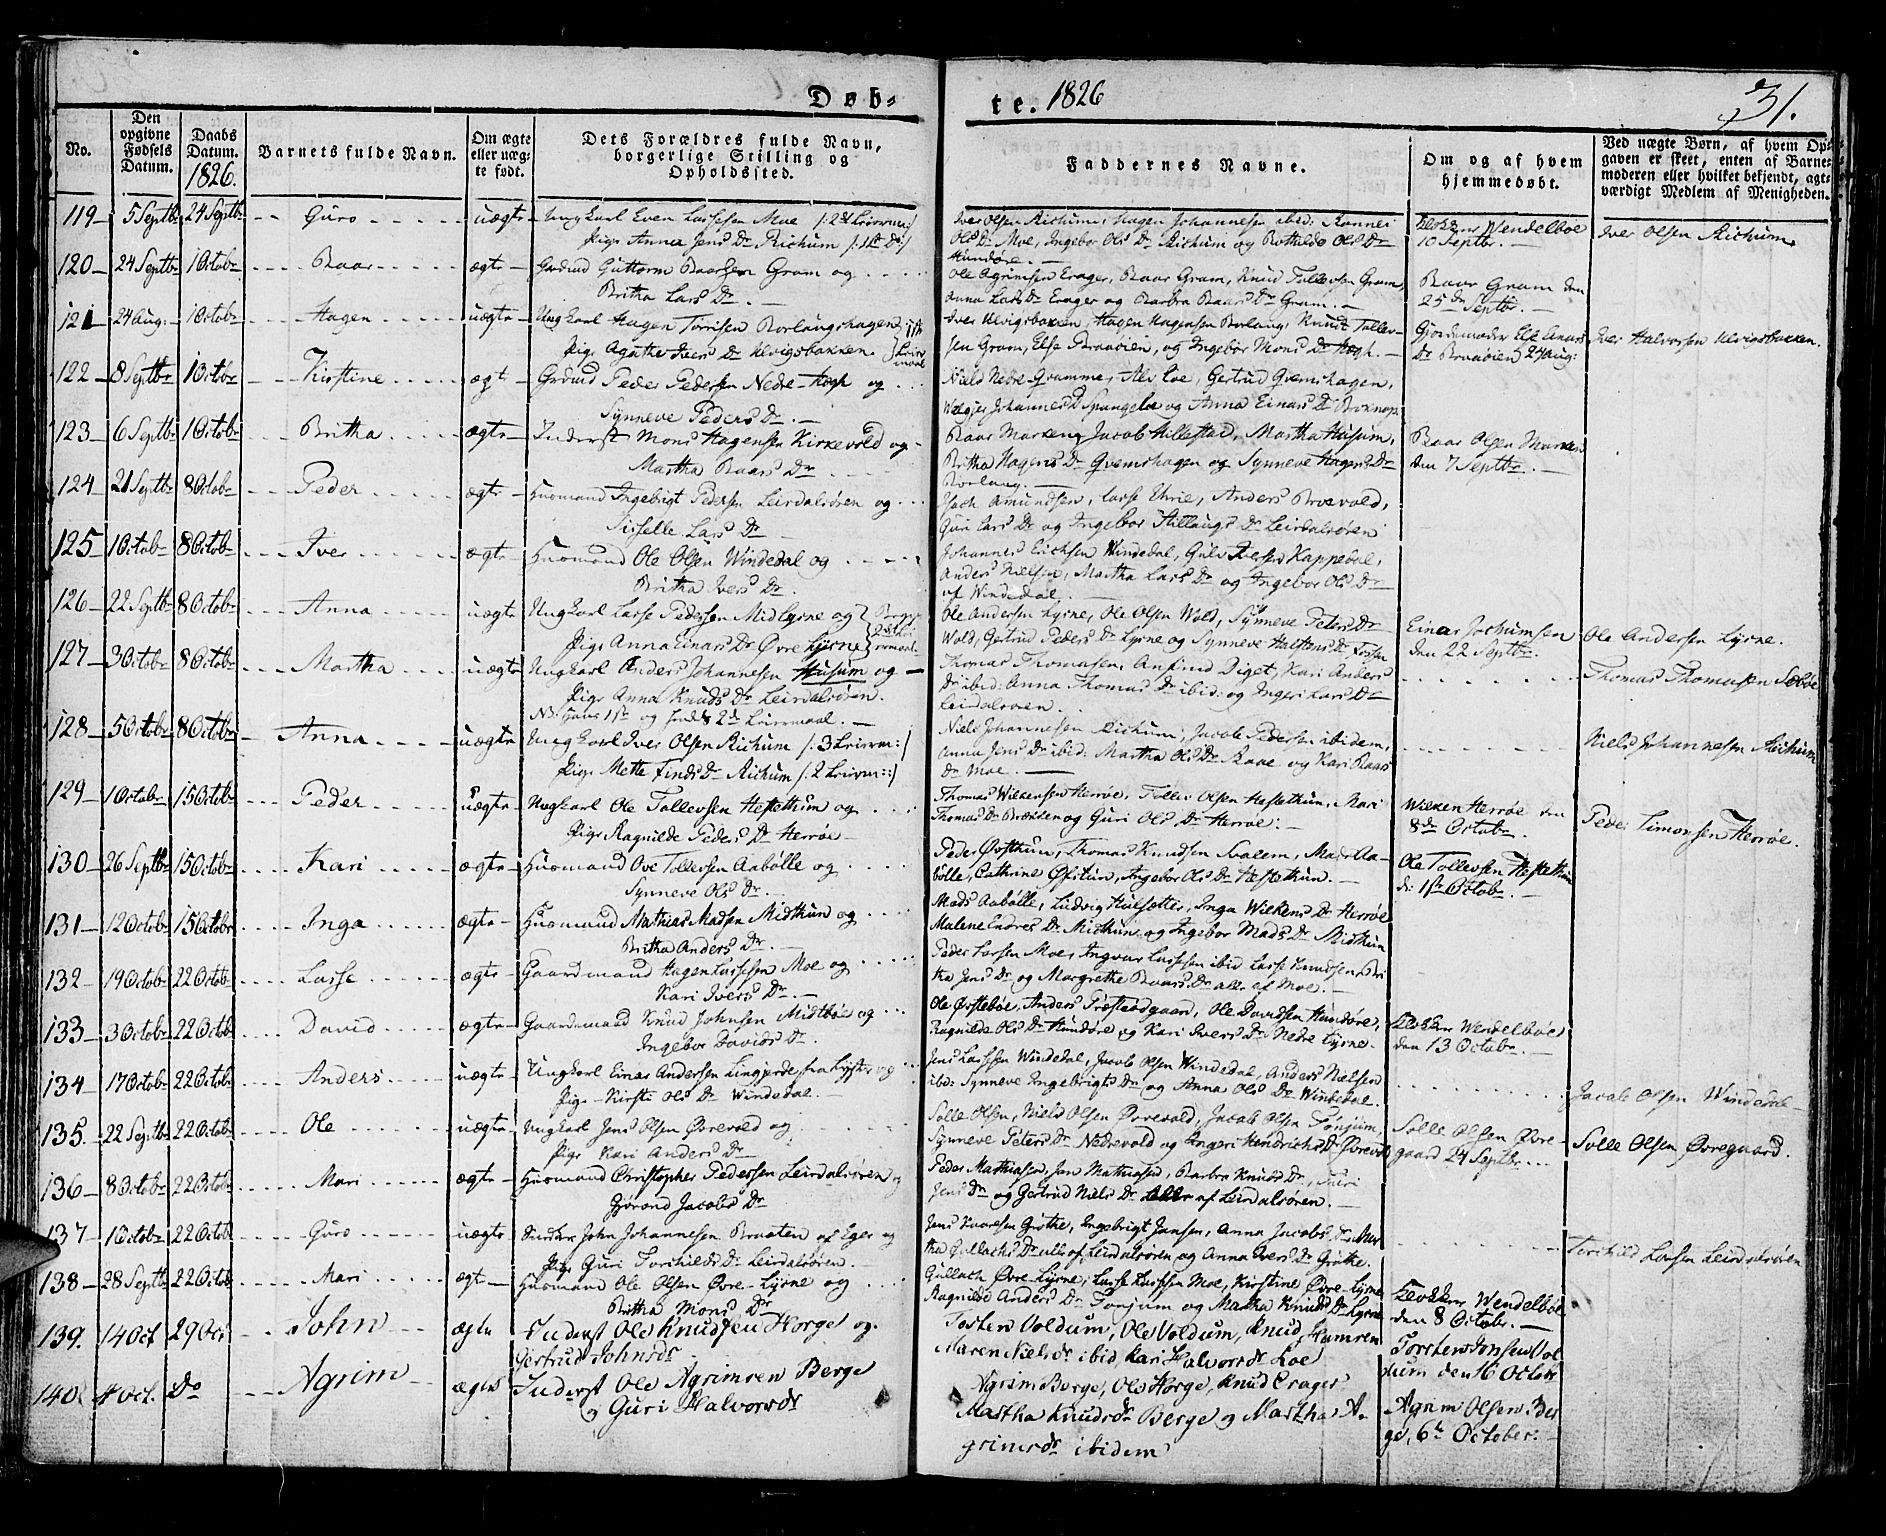 Døb-
te. 1826
31.
No.
Den opgivne Fødsels Datum.
Daabs Datum. 1826.
Barnets fulde Navn.
Om ægte eller uægte født.
Dets Forældres fulde Navn, borgerlige Stilling og Opholdssted.
Faddernes Navne.
Om og af hvem hjemmedøbt.
Ved uægte Børn, af hvem Opgaven er skeet, enten af Barnemoderen eller hvilket bekjendt, agtværdigt Medlem af Menigheden.
119 5 Septbr 24 Septbr Guro uægte Ungkarl Even Lassesen Moe
Pige Anna Jens Dr Richum
Iver Olsen Richum, Hagen Johannesen ibid: Rannei
Ols Dr Moe, Ingebor Ols Dr Richum og Botilde Ols Dr
Hundøre.
Klokker Wendelboe
10 Septbr.
Iver Olsen Richum
120 24 Septbr 1 Octobr Baar ægte Grdmd Guttorm Baarsen Gram og
Britha Lars Dr
Ole Agrimsen Erager, Baar Gram, Knud Tollevsen Gram,
Anna Lars Dr Erager og Barbra Baars Dr Gram.
Baar Gram den
25de Septbr.
121 24 Aug: 1 Octobr Hagen uægte Ungkarl Hagen Torrisen Borlaugshagen
Pige Agathe Ivers Dr Ulvigsbakken
Iver Ulvigsbakken, Hagen Hagensen Borlaug, Knud Tollev-
sen Gram, Else Braaøien, og Ingebor Mons Dr Hægh.
Gjordemoder Else Einars
Dr Braaøien 24 Aug:
Iver Halvorsen Ulvigsbakken.
122 8 Septbr 1 Octobr Kirstine ægt Grdmd Peder Pedersen Nedre-Hægh og
Synneve Peders Dr
Niels Nedre-Qvamme, Alv Loe, Gertrud Qvemshagen,
Johannes Spangelo og Anna Einars Dr
123 6 Septbr 1 Octobr Britha ægte Inderst Mons Hagensen Kirkevold og
Martha Baars Dr
Baar Marken, Jacob Hillestad, Martha Husum,
Britha Hagens Dr Qvemshagen og Synneve Hagens Dr
Borlaug.
Baar Olsen Marken
den 7 Septbr.
124 21 Septbr 8 Octobr Peder ægte Huusmand Ingebrigt Pedersen Leirdalsøren og
Sisselle Lars Dr
Amundsen, Lasse Ehrie, Anders Broevold,
Guri Lars Dr og Ingebor Hillaugs Dr Leirdalsøren
125 1 Octobr 8 Octobr Iver ægte Huusmand Ole Olsen Windedal og
Britha Ivers Dr
Johannes Erichsen Windedal, Gulv Iversen Kappedal,
Anders Nielsen, Martha Lars Dr og Ingebor Ols Dr
af Windedal.
126 22 Septbr 8 Octobr Anna uægte Ungkarl Lasse Pedersen Midlyrne og
Pige Anna Einars Dr Øvre Lyrne
Ole Andersen Lyrne, Ole Olsen Wold, Synneve Peters Dr
Wold, Gertrud Peders Dr Lyrne og Synneve Halstens Dr
Einar Jochumsen
den 22 Septbr.
Ole Andersen Lyrne.
127 3 Octobr 8 Octobr Martha uægte Ungkarl Anders Johannesen Husum og
Pige Anna Knuds Dr Leirdalsøren.
NB. Hans 1ste og hendes 2det Leiermaal.
Thomas Thomasen, Anfind Qiget, Kari Anders
Dr ibid: Anna Thomas Dr ibid: og Ingeri Lars Dr
Leirdalsøren.
Thomas Thomasen Sæbøe
128 5 Octobr 8 Octobr Anna uægte Ungkarl Iver Olsen Richum /: 3 Leierm :/
Pige Mette Finds Dr Richum /: 2 Leierm: :/
Niels Johannesen Richum, Jacob Pedersen ibidem,
Anna Jens Dr ibid. Martha Ols Dr Raae og Kari Baars
Dr Moe.
Niels Johannesen Richum
129 1 Octobr 15 Octobr Peder uægte Ungkarl Ole Tollevsen Hestethun og
Pige Ragnilde Peders Dr Herrøe
Thomas Wilkensen Herrøe, Tollev Olsen Hestethun, Mari
Thomas Dr Bræiden og Guri Ols Dr Herrøe.
Wilken Herrøe den
8de Octobr.
Peder Simonsen Herrøe.
130 26 Septbr 15 Octobr Kari ægte Huusmand Ove Tollevsen Aabølle og
Synneve Ols Dr
Peder Østhun, Thomas Knudsen Svalem, Mads Aa-
bölle, Cathrine Østtun, Ingebor Ols Dr Hestethun.
Ole Tollevsen Hestethun
d: 1ste Octobr.
131 12 Octobr 15 Octobr Inga ægte Huusmand Mathias Madsen Midthun og
Britha Anders Dr
Mads Aabølle, Ludvig Hulsetter, Inga Wilkens Dr Herrøe
Malene Endres Dr Midthun og Ingebor Mads Dr Midthun
132 19 Octobr 22 Octobr Lasse ægte Gaardmand Hagen Lassesen Moe og
Kari Ivers Dr
Peder Larsen Moe, Ingvar Lassesen ibid Lasse Knudsen, Bri
tha Jens Dr og Margrethe Baars Dr alle af Moe.
133 3 Octobr 22 Octobr David ægte Gaardmand Knud Johnsen Midtbøe og
Ingebor Davids Dr.
Ole Øvstebøe, Anders Præstegaard, Ole Davidsen Hundøre,
Ragnilde Ols Dr Hundøre og Kari Ivers Dr Nedre Lyrne.
Klokker Wendelboe
den 13 Octobr.
134 17 Octobr 22 Octobr Anders uægte Ungkarl Einar Andersen Lingjerde fra Lyster og
Pige Kirsti Ols Dr Windedal.
Jens Lassesen Windedal, Jacob Olsen Windedal, Anders Nielsen
ibid: Synneve Ingebrigts Dr og Anna Ols Dr Windedal.
Jacob Olsen Windedal
135. 22 Septbr 22 Octobr Ole uægte Ungkarl Jens Olsen Øvrevold og
Pige Kari Anders Dr
Solle Olsen, Niels Olsen Øvrevold, Jacob Olsen Tønjum,
Synneve Peters Dr Nedrevold og Ingeri Hendrichs Dr Øvrevold
Solle Olsen Øvre-
gaard 24 Septbr.
Solle Olsen Øvregaard.
136 8 Octobr 22 Octobr Mari ægte Huusmand Christopher Pedersen Leirdalsøren og
Gjørond Jacobs Dr
Peder Mathiasen, Jan Mathiasen, Barbra Knuds Dr, Guri
Jens Dr og Gertrud Niels Dr alle af Leirdalsøren.
137 1 Octobr 22 Octobr Guro uægte John Johannesen Braaten af Eger og
Pige Guri Torchilds Dr Leirdalsøren.
Jens Knaresen Grøthe, Ingebrigt Jansen, Anna Jacobs Dr, Mar
tha Gullachs Dr alle af Leirdalsøren og Anna Ivers Dr Grøthe.
Torchild Larsen Leirdalsøren
138 28 Septbr 22 Octobr Mari ægt Huusmand Ole Olsen Øvre-Lyrne og
Britha Mons Dr
Gullach Øvre-Lyrne, Lasse Lassesen Moe, Kirstine Øvre-Lyrne
Ragnilde Anders Dr Tønjum og Martha Knuds Dr Lyrne
Klokker Wendelboe
den 8 October.
139. 14 Oct 29 Oct John ægte Inderst Ole Knudsen Horge og
Gertrud Johnsdr
Tosten Voldum, Ole Voldum, Knud Hamren
Maren Nielsdr ibid, Kari Halvorsdr Loe
Torsten Jonsen Vol
dum den 16 Octobr
140. 4 Oct. Do Agrim ægte Inderst Ole Agrimsen Berge
og Guri Halvorsdr
Agrim Berge, Ole Horge, Knud Erager
Martha Knudsdr Berge og Martha A-
grimsdr ibidem
Agrim Olsen Ber
ge, 6te October.